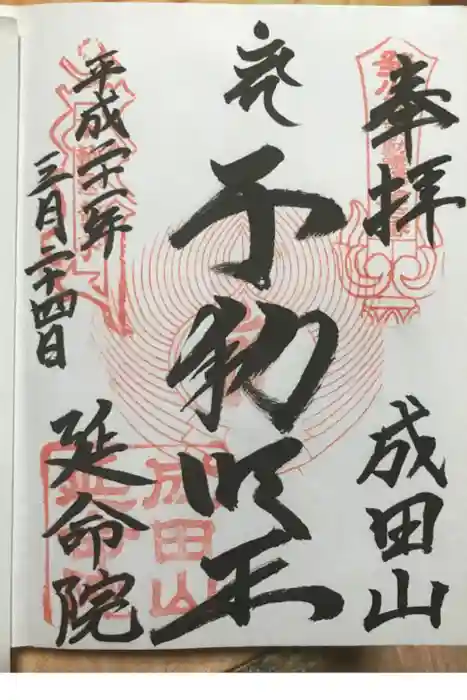 奉拝
成田山
不動明王
平成二十一年
三月二十四日
延命院
成田山
延命院